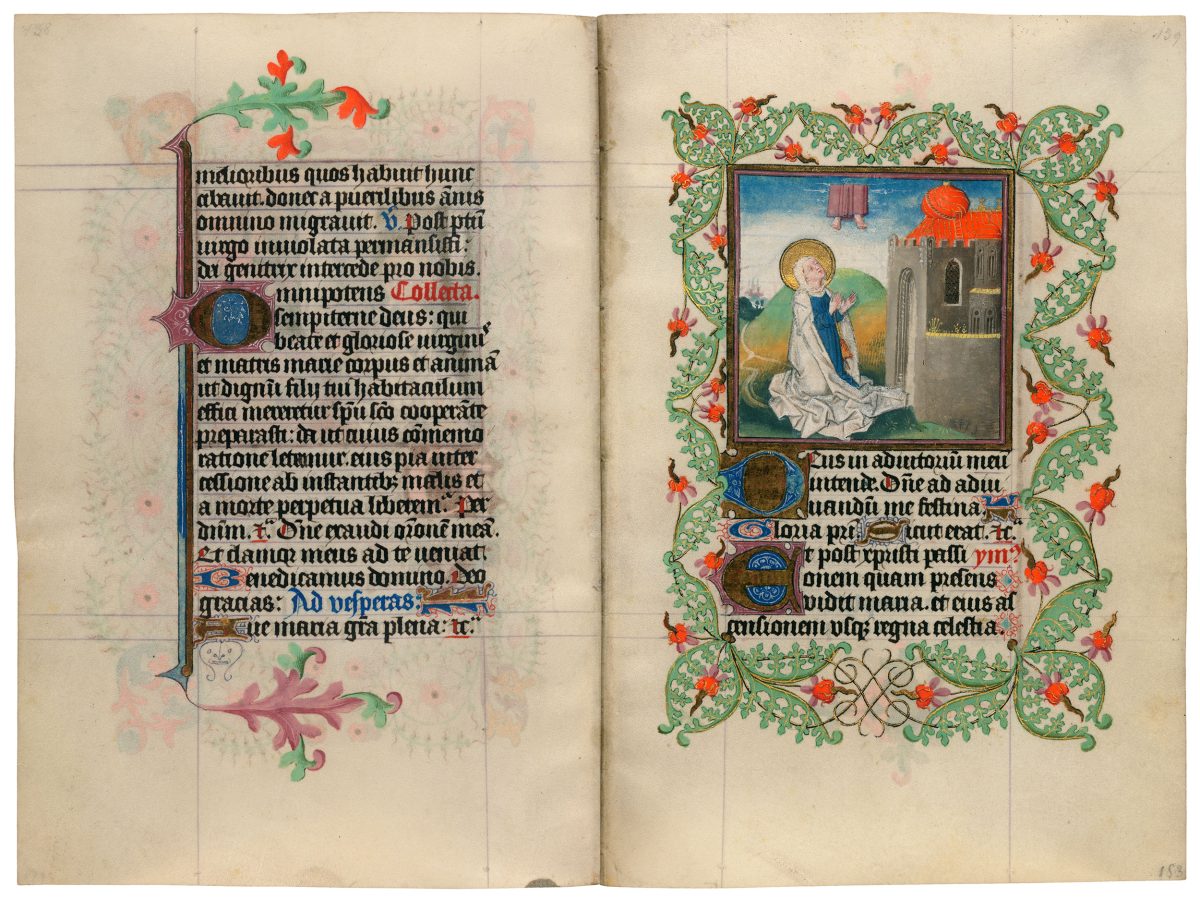 138
melioribus quos habuit hunc
cibauit. donec a puerilibus ānis
omnino migrauit. V̄ Post ptū
uirgo inuiolata permansisti:
dei genitrix intercede pro nobis.
Omnipotens Collecta.
sempiterne deus: qui
beate et gloriose uirgīs
et matris marie corpus et animā
ut dignū filij tui habitaculum
effici mereretur spū scō cooperāte
preparasti: da ut cuius cōmemo
ratione letamur. eius pia inter
cessione ab instantibꝫ malis et
a morte perpetua liberemʳ. Per
dnūm. ⁊cᵃ. Dn̄e exaudi or̄onē meā.
Et clamor meus ad te ueniat.
Benedicamus domino. Deo
gracias: Ad vesperas:
Aue maria gr̄a plena: ⁊cᵃ
139
Deus in adiutoriū meū
intende. Dn̄e ad adiu
uandū me festina.
Gloria pr̄i Sicut erat. ⁊cᵃ.
Et post xpristi passi ymᵍ
onem quam presens
vidit maria. et eius as
censionem vsqꝫ regna celestia.
153